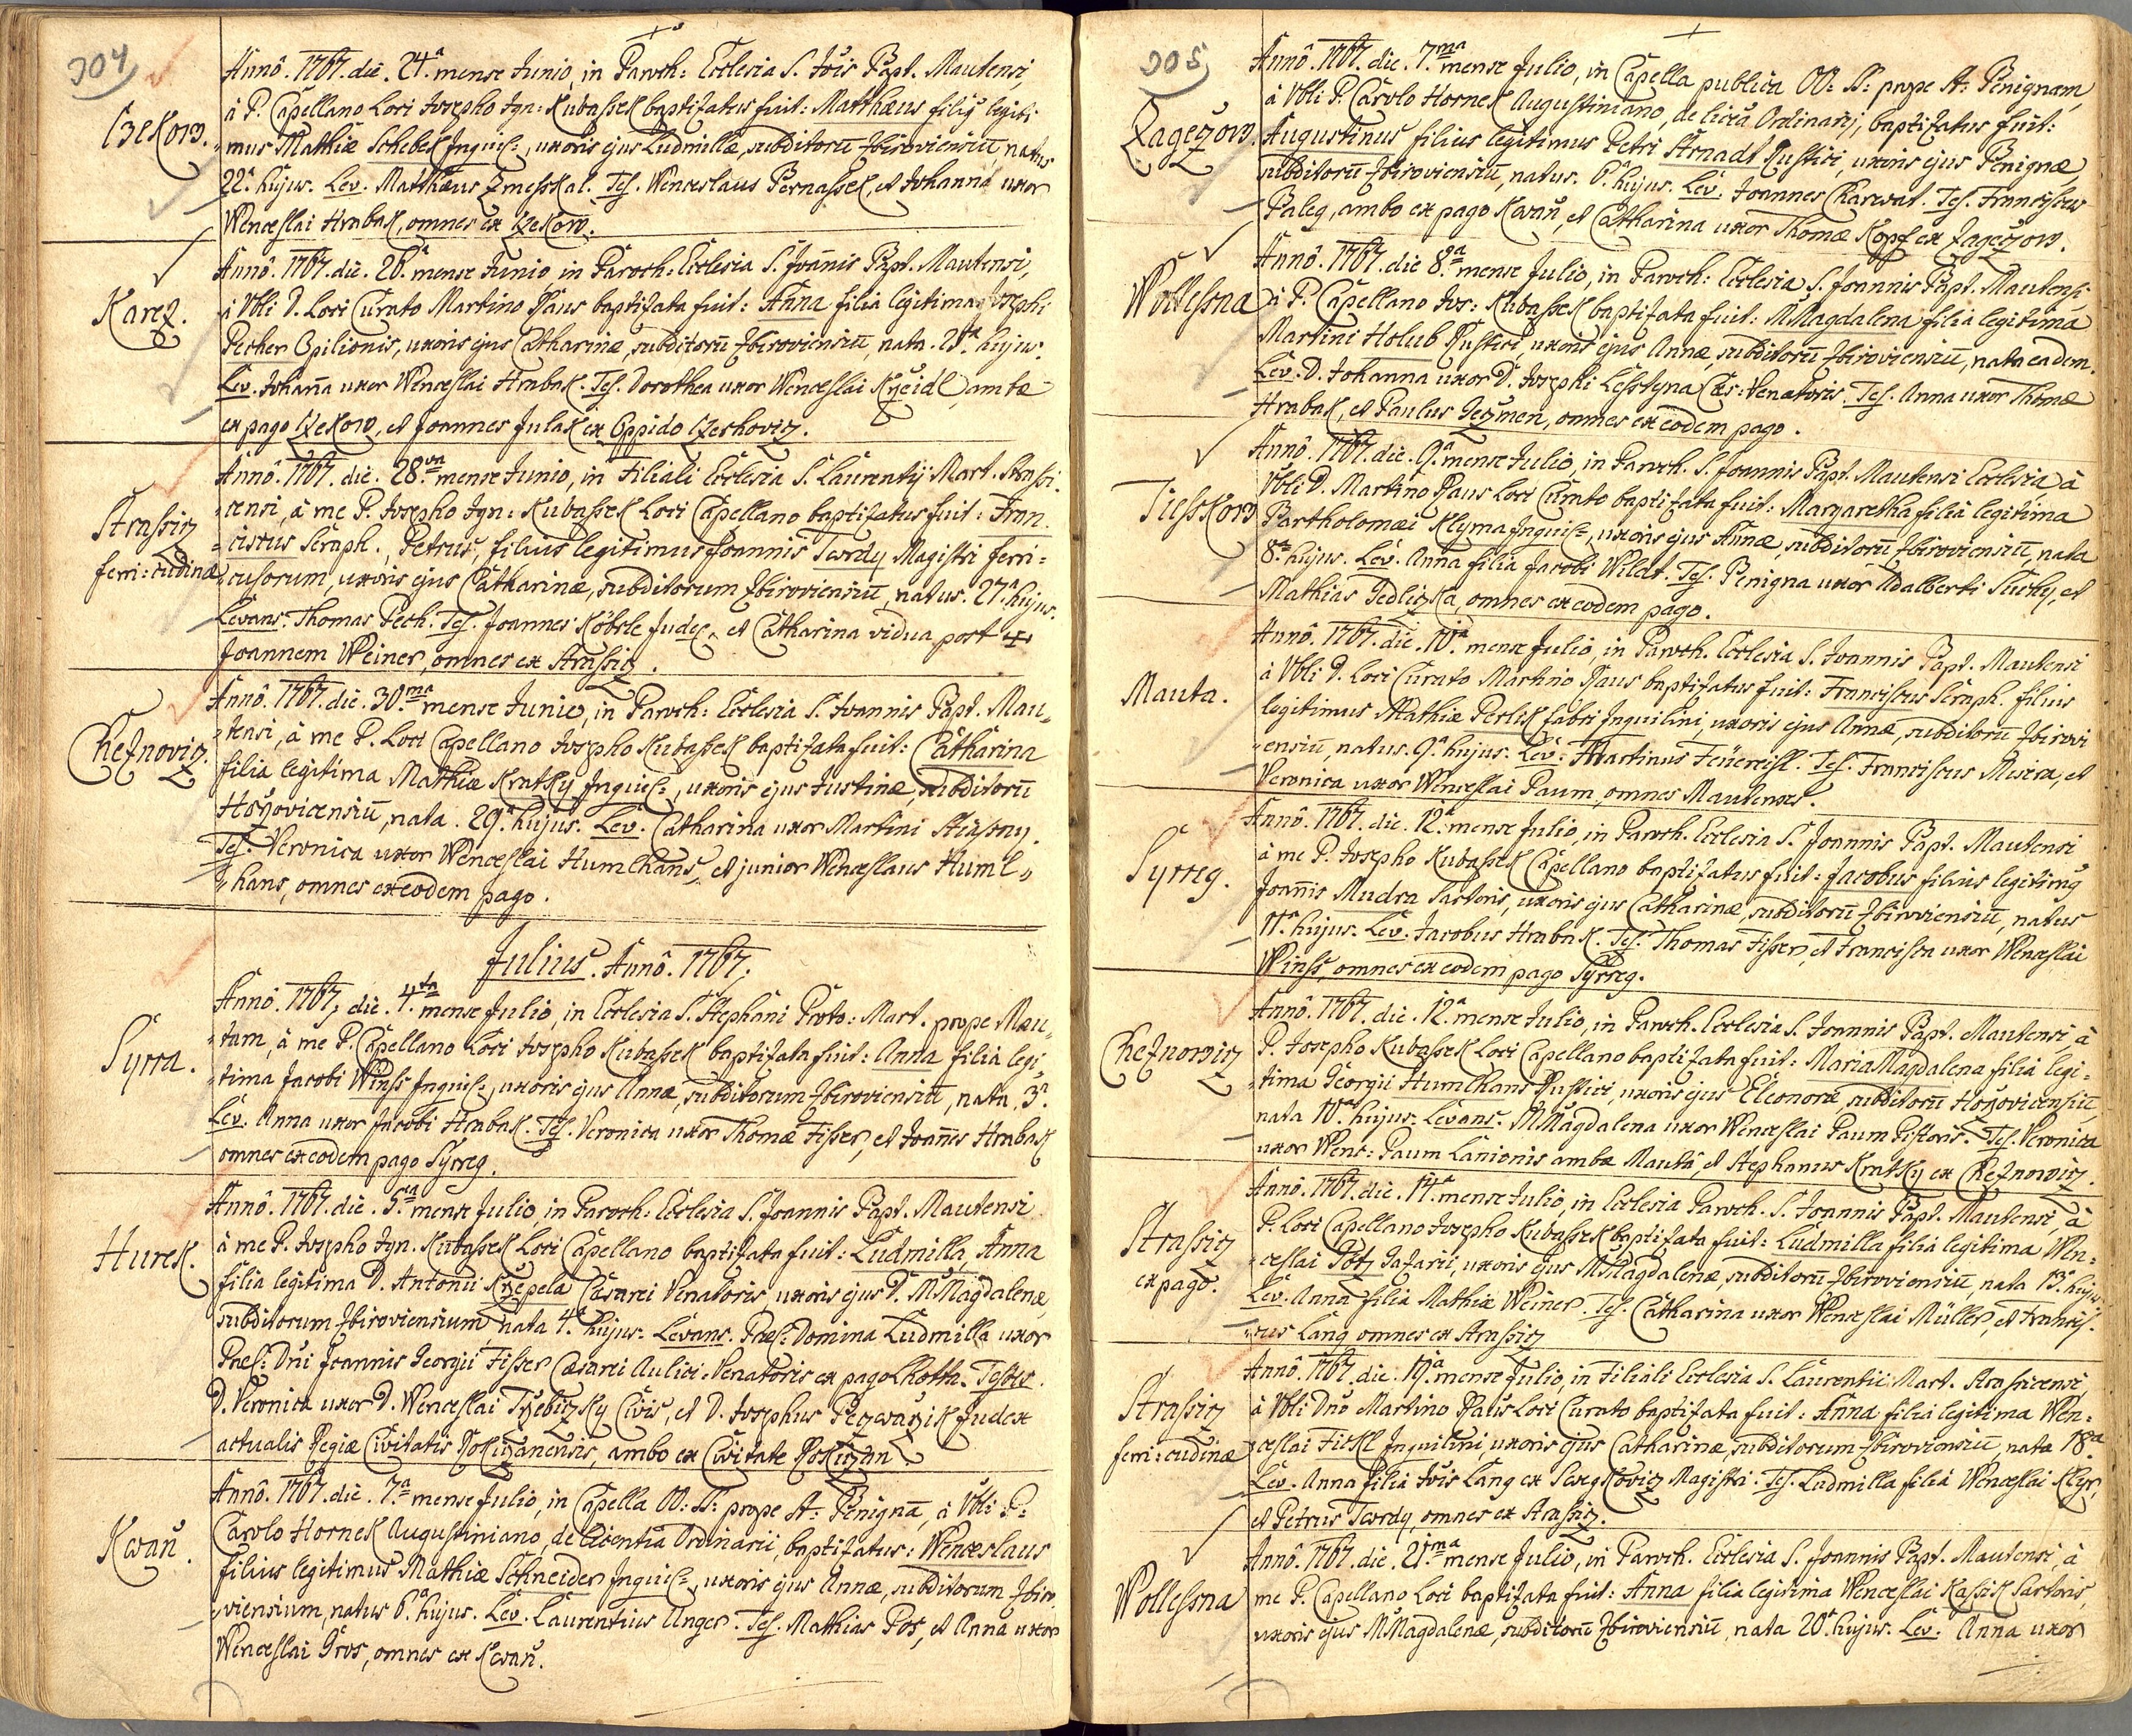 304
Czekow.
Annô. 1767. die. 24.ª mense Junio, in Paroch: Ecclesia S. Jõis Bapt. Mautensi,
à P. Capellano Loci Josepho Ign: Kubassek baptizatus fuit: Matthæus filiꝰ legiti-
mus Mathiæ Schebek Inquil:, uxoris ejus Ludmillæ, subditorū Zbiroviensiū, natus
22.ª hujus. Lev. Matthæus Zmesskal. Tes. Wenceslaus Bernassek, et Johanna uxor
Wenceslai Hrabak, omnes ex Czekow.
Karez.
Annô. 1767. die. 26.ª mense Junio, in Paroch: Ecclesia S. Joannis Bapt. Mautensi,
à Vbli D. Loci Curato Martino Paus baptizata fuit: Anna filia legitima Josephi
Pecher Opilionis, uxoris ejus Catharinæ, subditorū Zbiroviensiū, nata hujus.
Lev. Johanna uxor Wenceslai Hrabak. Tes. Dorothea uxor Wenceslai Kržeidl, ambæ
ex pago Czekow, et Joannes Julak ex Oppido Czerhoviz.
Strassiz
ferri:cudinæ
Annô. 1767. die. 28.va mense Junio, in Filiali Ecclesia S. Laurentij Mart. Strassi-
censi, à me P. Josepho Ign: Kubassek Loci Capellano baptizatus fuit: Fran-
ciscus Seraph., Petrus, filius legitimus Joannis Twrdy Magistri ferri-
cusorum, uxoris ejus Catharinæ, subditorum Zbiroviensiū, natus. 27.ª hujus.
Levans. Thomas Pech. Tes. Joannes Köbrle Judex, et Catharina vidua post ✝
Joannem Weiner, omnes ex Strassiz.
Cheznoviz.
Annô. 1767. die. 30.ma mense Junio, in Paroch: Ecclesia S. Joannis Bapt. Mau-
tensi, à me P. Loci Capellano Josepho Kubassek baptizata fuit: Catharina
filia legitima Mathiæ Kratky Inquil:, uxoris ejus Justinæ, subditorū
Horžovicensiū, nata. 29.ª hujus. Lev. Catharina uxor Martini
Tes. Veronica uxor Wenceslai Humlhans, et junior Wenceslaus Huml-
hans, omnes ex eodem pago.
Julius. Annô. 1767.
Syrra.
Annô. 1767. die. 4.ta mense Julio, in Ecclesia S. Stephani Proto: Mart. prope Mau-
tam, à me P. Capellano Loci Josepho Kubassek baptizata fuit: Anna filia legi-
tima Jacobi Winss Inquil:, uxoris ejus Annæ, subditorum Zbiroviensiū, nata. 3.ª
Lev. Anna uxor Jacobi Hrabak. Tes. Veronica uxor Thomæ Fisser, et Joannes Hrabak
omnes ex eodem pago Syrreg.
Hurek.
Annô. 1767. die. 5.ta mense Julio, in Paroch: Ecclesia S. Joannis Bapt. Mautensi
à me P. Josepho Ign. Kubassek Loci Capellano baptizata fuit: Ludmilla, Anna
filia legitima D. Antonii Kržepela Cæsarei Venatoris, uxoris ejus D. M.Magdalenæ,
subditorum Zbiroviensium, nata 4.ª hujus. Levans. Præ: Domina Ludmilla uxor
Præ: Dni Joannis Georgii Fisser Cæsarei Aulici Venatoris ex pago Lhotta. Testes.
D. Veronica uxor D. Wenceslai Tržebizky Civis, et D. Josephus Judex
actualis Regiæ Civitatis Rokizanensis, ambo ex Civitate Rokizan.
Kwaň.
Annô. 1767. die. 7.ª mense Julio, in Capella OO: SS: prope St: Benignā, à Vbli P:
Carolo Hornek Augustiniano, de licentia Ordinarii, baptizatus: Wenceslaus
filius legitimus Mathiæ Schneider Inquil:, uxoris ejus Annæ, subditorum Zbiro-
viensium, natus 6.ª hujus. Lev. Laurentius Unger. Tes. Mathias Pos, et Anna uxor
Wenceslai Gros, omnes ex Kwaň.
305
Zagezow.
Annô. 1767. die. 7.ma mense Julio, in Capella publica OO: SS: prope St: Benignam,
à Vbli P. Carolo Hornek Augustiniano, de licia Ordinarij, baptizatus fuit:
Augustinus filius legitimus Petri Arnadt Rustici, uxoris ejus Benignæ,
subditorū Zbiroviensiū, natus. 6.ª hujus. Lev. Joannes Charwat. Tes. Franciscus
Paleg, ambo ex pago Kwaň, et Catharina uxor Thomæ Kopf ex Zagezow.
Wollessna
Annô. 1767. die 8.va mense Julio, in Paroch: Ecclesia S. Joannis Bapt. Mautensi
à P. Capellano Jos: Kubassek baptizata fuit: M.Magdalena filia legitima
Martini Holub Rustici, uxoris ejus Annæ, subditorū Zbiroviensiū, nata eadem.
Lev. D. Johanna uxor D. Josephi Lesstyna Cæs: Venatoris. Tes. Anna uxor Thomæ
Hrabak, et Paulus Geczmen, omnes ex eodem pago.
Tiesskow
Annô. 1767. die. 9.ª mense Julio, in Paroch. S. Joannis Bapt. Mautensi Ecclesia à
Vbli D. Martino Paus Loci Curato baptizata fuit: Margaretha filia legitima
Bartholomæi Klyma Inquil:, uxoris ejus Annæ, subditorū Zbiroviensiū, nata
8.va hujus. Lev. Anna filia Jacobi Wildt. Tes. Benigna uxor Adalberti Suchy, et
Mathias Gedlizka, omnes ex eodem pago.
Mauta.
Annô. 1767. die. 10.ª mense Julio, in Paroch. Ecclesia S. Joannis Bapt. Mautensi
à Vbli D. Loci Curato Martino Paus baptizatus fuit: Franciscus Seraph. filius
legitimus Mathiæ Perlik fabri Inquilini, uxoris ejus Annæ, subditorū Zbirovi-
ensiū, natus. 9.ª hujus. Lev: Martinus Tes. Franciscus Misera, et
Veronica uxor Wenceslai Paum, omnes Mautenses.
Syrreg.
Annô. 1767. die. 12.ª mense Julio, in Paroch. Ecclesia S. Joannis Bapt. Mautensi
à me P. Josepho Kubassek Capellano baptizatus fuit: Jacobus filius legitimꝰ
Joannis Mudra Sartoris, uxoris ejus Catharinæ, subditorū Zbiroviensiū, natus
11.ª hujus. Lev. Jacobus Hrabak. Tes. Thomas Fisser, et Francisca uxor Wenceslai
Winss, omnes ex eodem pago Syrreg.
Cheznowiz
Annô. 1767. die. 12.ª mense Julio, in Paroch. Ecclesia S. Joannis Bapt. Mautensi, à
P. Josepho Kubassek Loci Capellano baptizata fuit: Maria Magdalena filia legi-
tima Georgii Humlhans Rustici, uxoris ejus Eleonoræ, subditorū Horžovicensiū,
nata 10.ª hujus. Levans. M.Magdalena uxor Wenceslai Paum Pistoris. Tes. Veronica
uxor Wenc: Paum Lanionis ambæ Mauta, et Stephanus Kratky ex Cheznowiz.
Strassiz
ex pago.
Annô. 1767. die. 14.ª mense Julio, in Ecclesia Paroch. S. Joannis Bapt. Mautensi, à
P. Loci Capellano Josepho Kubassek baptizata fuit: Ludmilla filia legitima Wen-
ceslai Götz Safarii, uxoris ejus M.Magdalenæ, subditorū Zbiroviensiū, nata 13.ª hujus.
Lev. Anna filia Mathiæ Weiner. Tes. Catharina uxor Wenceslai Müller, et Francis-
cus Lang omnes ex Strassiz
Strassiz
ferri:cudinæ
Annô. 1767. die. 19.ª mense Julio, in Filiali Ecclesia S. Laurentii Mart. Strassicensi,
à Vbli Dño Martino Paus Loci Curato baptizata fuit: Anna filia legitima Wen-
ceslai Fickl Inquilini, uxoris ejus Catharinæ, subditorum Zbiroviensiū, nata 18.va
Lev. Anna filia Jõis Lang ex Magistri. Tes. Ludmilla filia Wenceslai Klyr,
et Petrus Twrdy, omnes ex Strassiz.
Wollessna
Annô. 1767. die. 21.ma mense Julio, in Paroch. Ecclesia S. Joannis Bapt. Mautensi, à
me P. Capellano Loci baptizata fuit: Anna filia legitima Wenceslai Kassik Sartoris,
uxoris ejus M.Magdalenæ, subditorū Zbiroviensiū, nata 20.ª hujus. Lev. Anna uxor